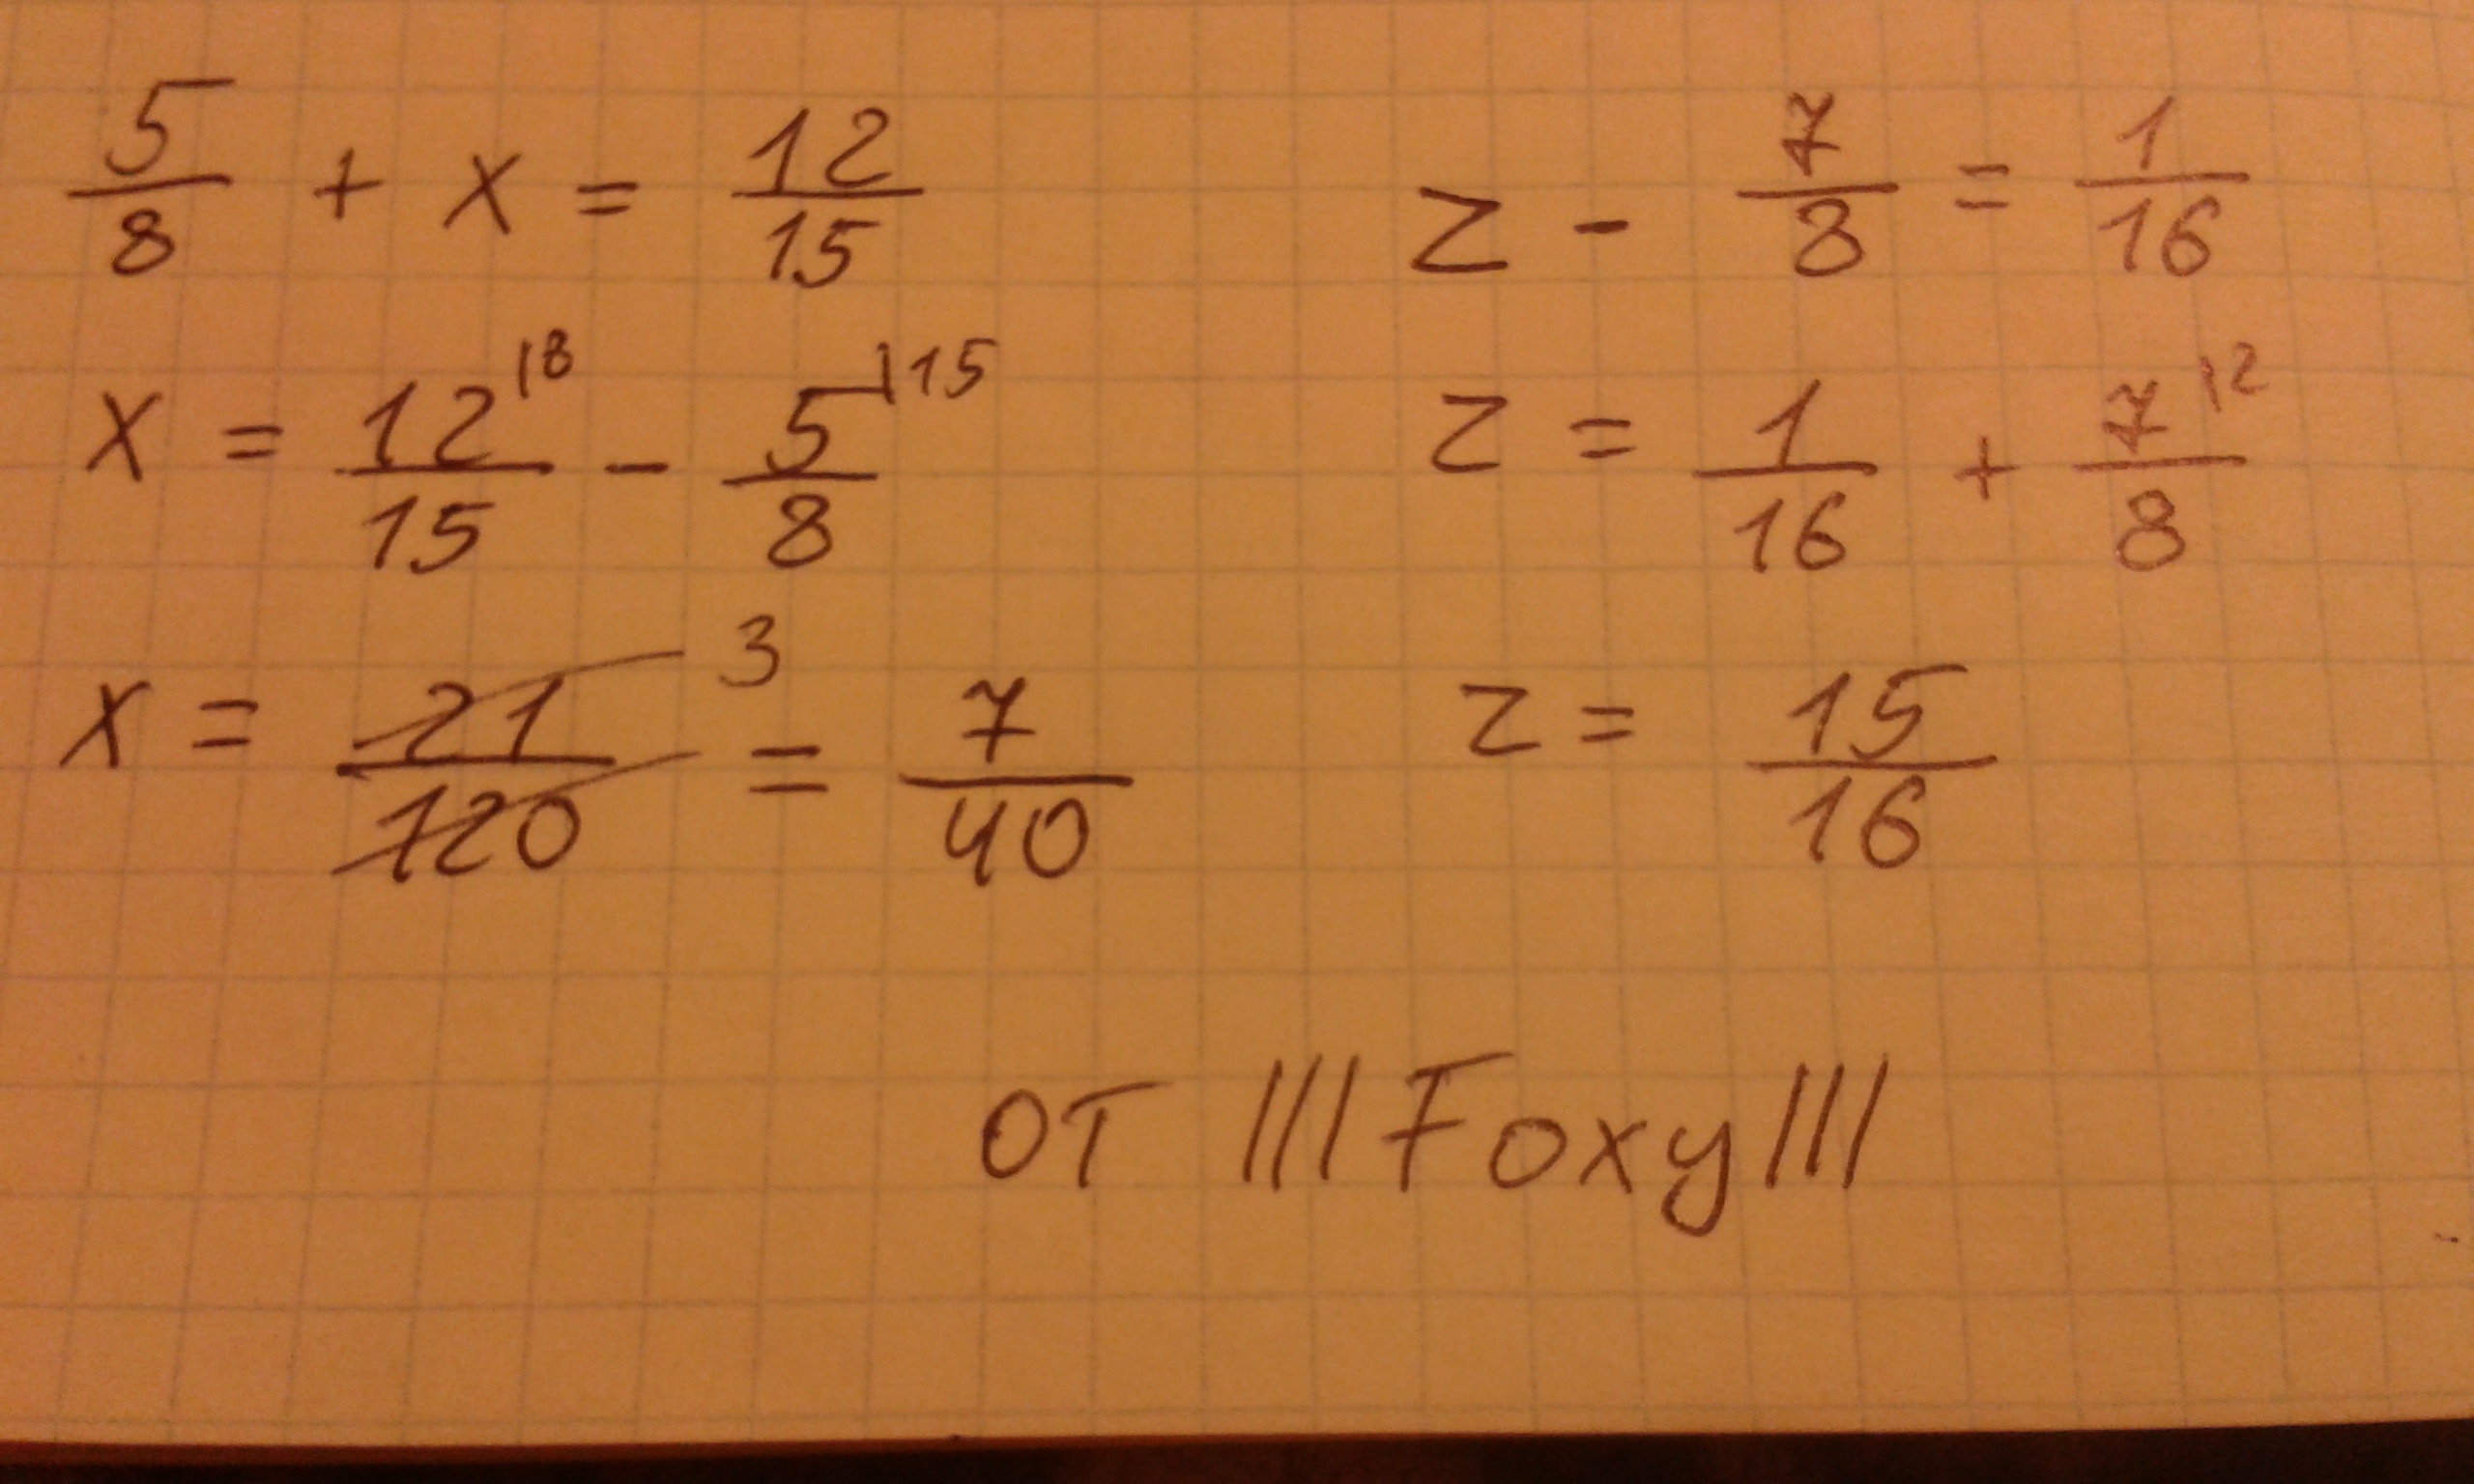 5/8 + x = 12/15
x = 12/15 |8 - 5/8 |15
x = 21/120 3 = 7/40
z - 7/8 = 1/16
z = 1/16 + 7/8 |2
z = 15/16
от |||Foxy|||